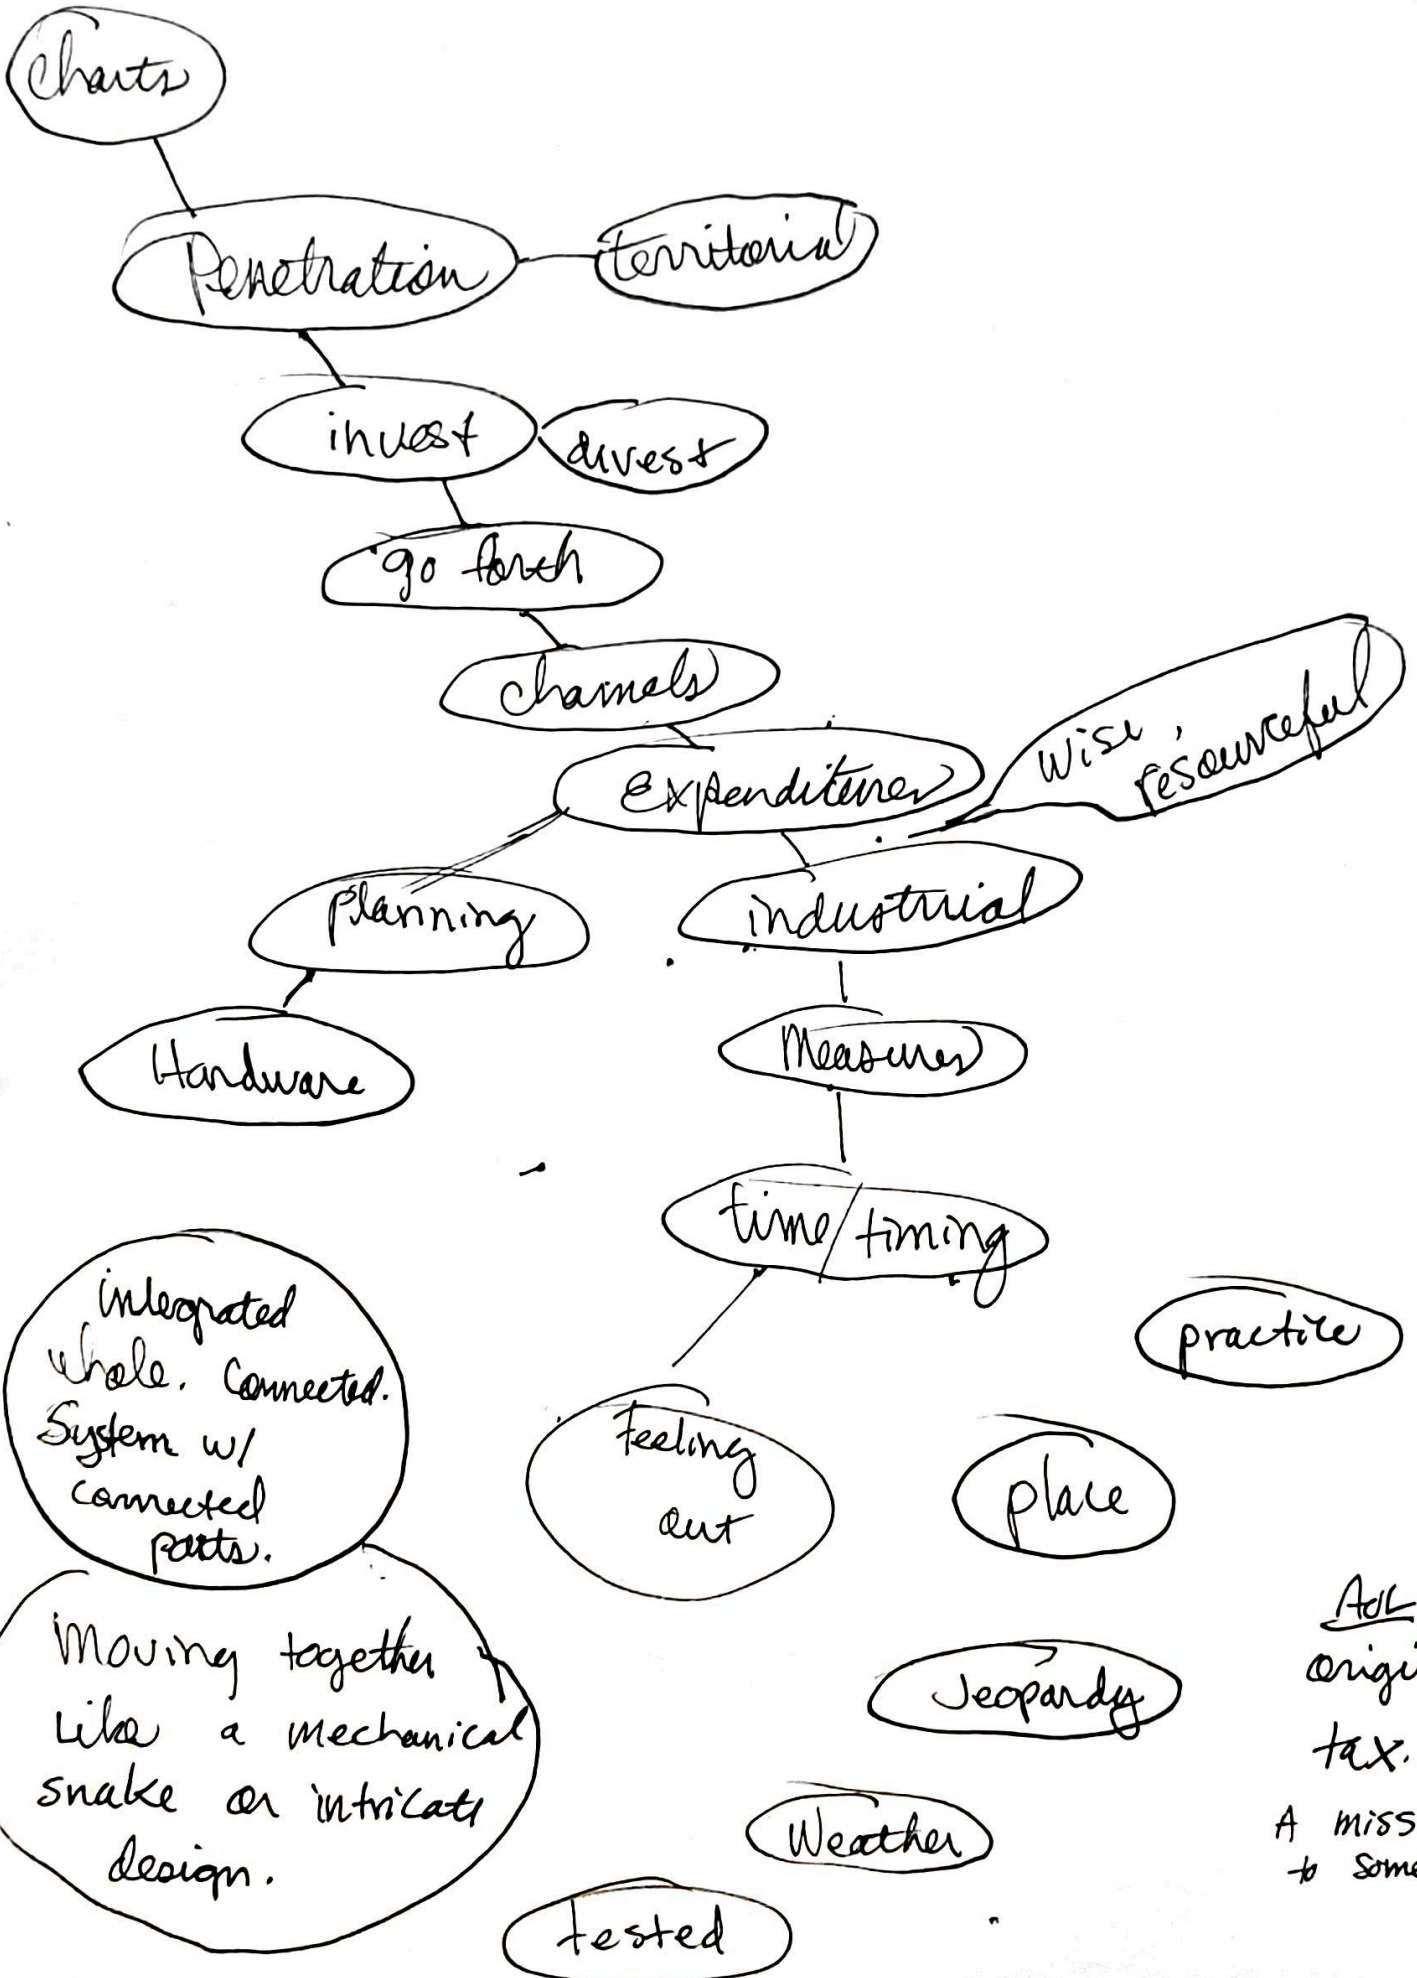 Charts
Penetration
territorial
invest
divest
go forth
channels
Expenditures
wise,
resourceful
planning
industrial
Hardware
Measures
time/timing
integrated
whole. Connected.
System w/
connected
parts.
practice
Feeling
out
place
Moving together
Like a mechanical
snake or intricate
design.
Jeopardy
origi
tax.
Weather
A miss
to some
tested